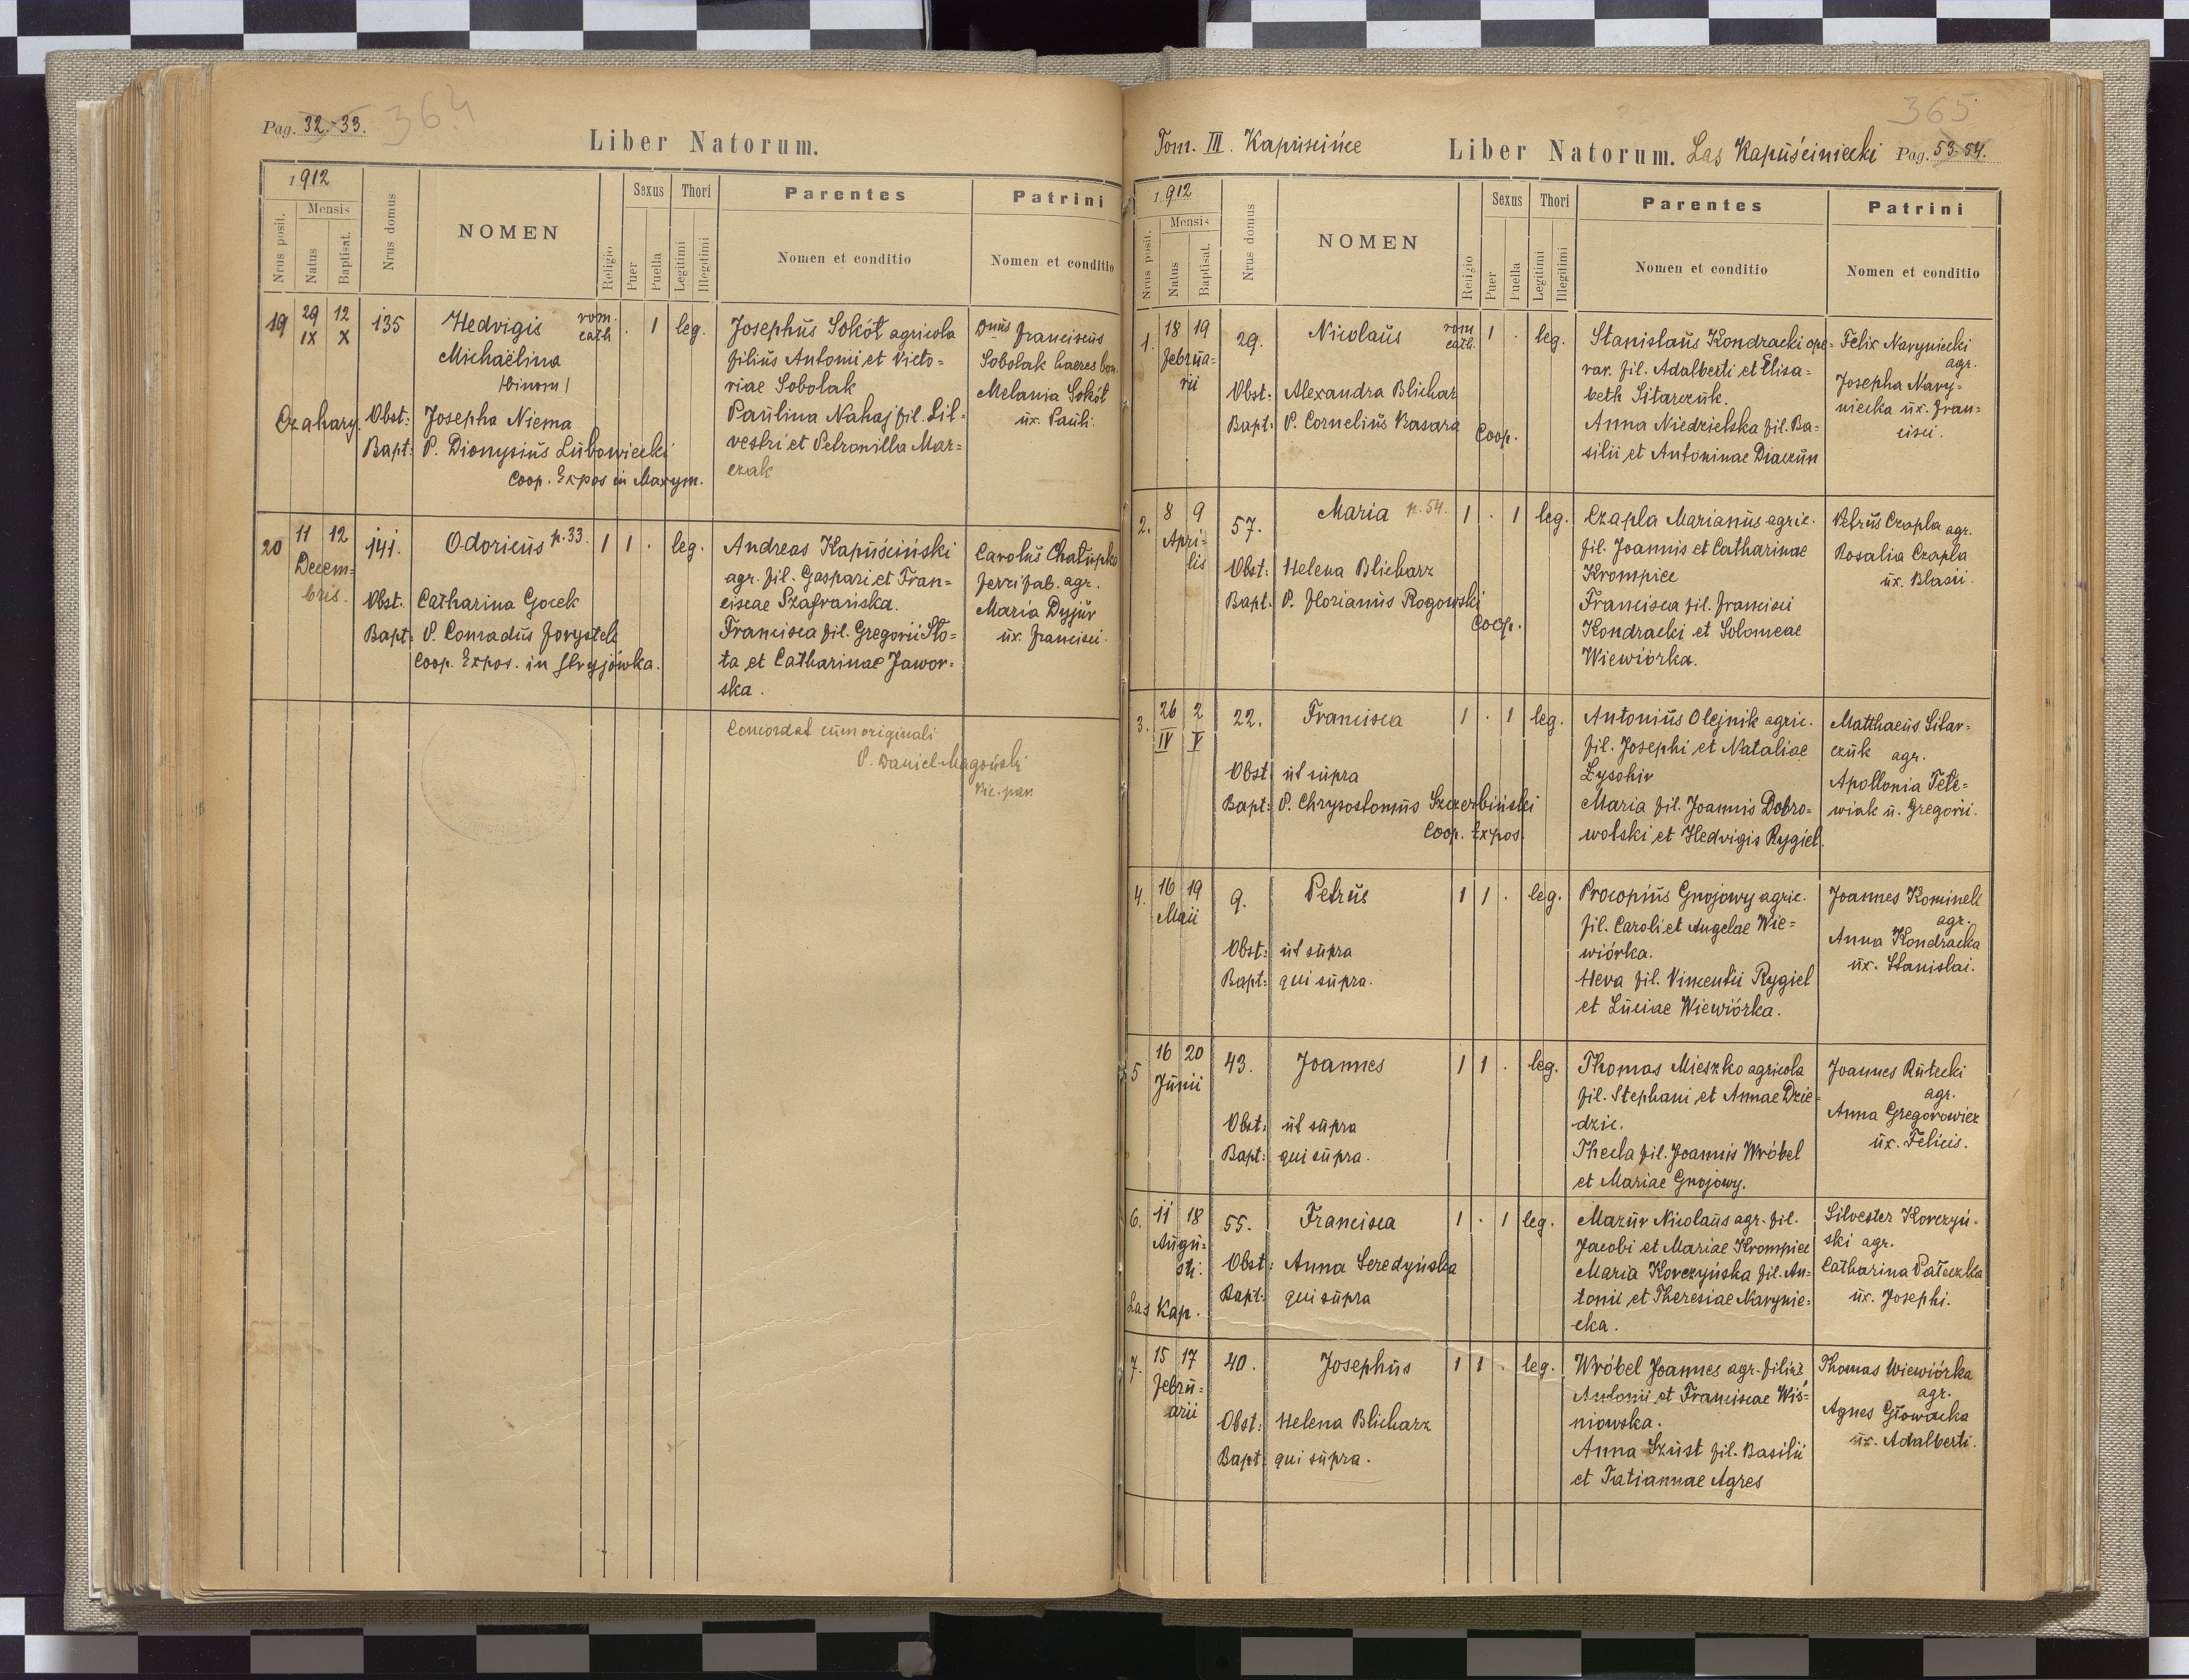 Pag. 32.-33. 364
Liber Natorum.
1912
Nrus posit.
Mensis
Natus
Baptisat.
Nrus domus
NOMEN
Religio
Sexus
Puer
Puella
Thori
Legitimi
Illegitimi
Parentes
Nomen et conditio
Patrini
Nomen et conditio
19 29 IX 12 X 135 Hedvigis rom. cath . 1 leg.
Michaëlina
/binom/
Czahary. Obst: Josepha Niema
Bapt: P. Dionysius Lubowiecki
Coop. Expos in Maxym.
Josephus Sokół agricola
filius Antoni et Victo-
riae Sobolak
Paulina Nahaj fil. Sil-
vestri et Petronilla Mar-
czak
Dnus Franciscus
Sobolak haeres bon.
Melania Sokół
ux. Pauli.
20 11 12 141. Odoricus p.33. 1 1 . leg.
Decem-
bris.
Obst. Catharina Gocek
Bapt: P. Conradus Forystek
Coop. Expos. in Stryjówka.
Andreas Kapuściński
agr. fil. Gaspari et Fran-
ciscae Szafrańska.
Francisca fil. Gregorii Sło-
ta et Catharinae Jawor-
ska.
Carolus Chałupka
ferri fab. agr.
Maria Dyjur
ux. Francisci.
Concordat cum originali
P. Daniel Magoński
Vic. par.
365
Tom. III. Kapuścińce Liber Natorum. Las Kapuściniecki Pag. 53-54.
1912
Nrus posit.
Mensis
Natus
Baptisat.
Nrus domus
NOMEN
Religio
Sexus
Puer
Puella
Thori
Legitimi
Illegitimi
Parentes
Nomen et conditio
Patrini
Nomen et conditio
1. 18 19 29. Nicolaus rom cath. 1 . leg.
Februa-
rii
Obst: Alexandra Blichar
Bapt: P. Cornelius Kasara
Coop.
Stanislaus Kondracki ope-
rar. fil. Adalberti et Elisa-
beth Sitarczuk.
Anna Niedzielska fil. Ba-
silii et Antoninae Diaczun
Felix Naryniecki
agr.
Josepha Nary-
niecka ux. Fran-
cisci.
2. 8 9 57. Maria p. 54. 1 . 1 leg.
Apri-
lis
Obst: Helena Blicharz
Bapt: P. Florianus Rogowski
Coop.
Czapla Marianus agric.
fil. Joannis et Catharinae
Krompice
Francisca fil. Francisci
Kondracki et Solomeae
Wiewiórka.
Petrus Czapla agr.
Rosalia Czapla
ux. Blasii.
3. 26 IV 2 V 22. Francisca 1 . 1 leg.
Obst ut supra
Bapt: P. Chrysostomus Szczerbiński
Coop. Expos.
Antonius Olejnik agric.
fil. Josephi et Nataliae
Łysohir
Maria fil. Joannis Dobro-
wolski et Hedvigis Rygiel.
Matthaeus Sitar-
czuk agr.
Apollonia Tete-
wiak u. Gregorii.
4. 16 19 9. Petrus 1 1 . leg.
Maii
Obst: ut supra
Bapt: qui supra.
Procopius Gnojowy agric.
fil. Caroli et Angelae Wie-
wiórka.
Heva fil. Vincentii Rygiel
et Luciae Wiewiórka.
Joannes Kominek
agr.
Anna Kondracka
ux. Stanislai.
5 16 20 43. Joannes 1 1 . leg.
Junii
Obst: ut supra
Bapt: qui supra.
Thomas Mieszko agricola
fil. Stephani et Annae Dzie-
dzic.
Thecla fil. Joannis Wróbel
et Mariae Gnojowy.
Joannes Rutecki
agr.
Anna Gregorowicz
ux. Felicis.
6. 11 18 55. Francisca 1 . 1 leg.
Augu-
sti.
Obst: Anna Seredyńska
Bapt: qui supra
Las Kap.
Mazur Nicolaus agr. fil.
Jacobi et Mariae Krompiec
Maria Korczyńska fil. An-
tonii et Theresiae Narynie-
cka.
Silvester Korczyń-
ski agr.
Catharina Pałeczka
ux. Josephi.
7. 15 17 40. Josephus 1 1 . leg.
Febru-
arii
Obst: Helena Blicharz
Bapt: qui supra.
Wróbel Joannes agr. filius
Antonii et Franciscae Wiś-
niowska.
Anna Szust fil. Basilii
et Tatiannae Agres
Thomas Wiewiórka
agr.
Agnes Głowacka
ux. Adalberti.